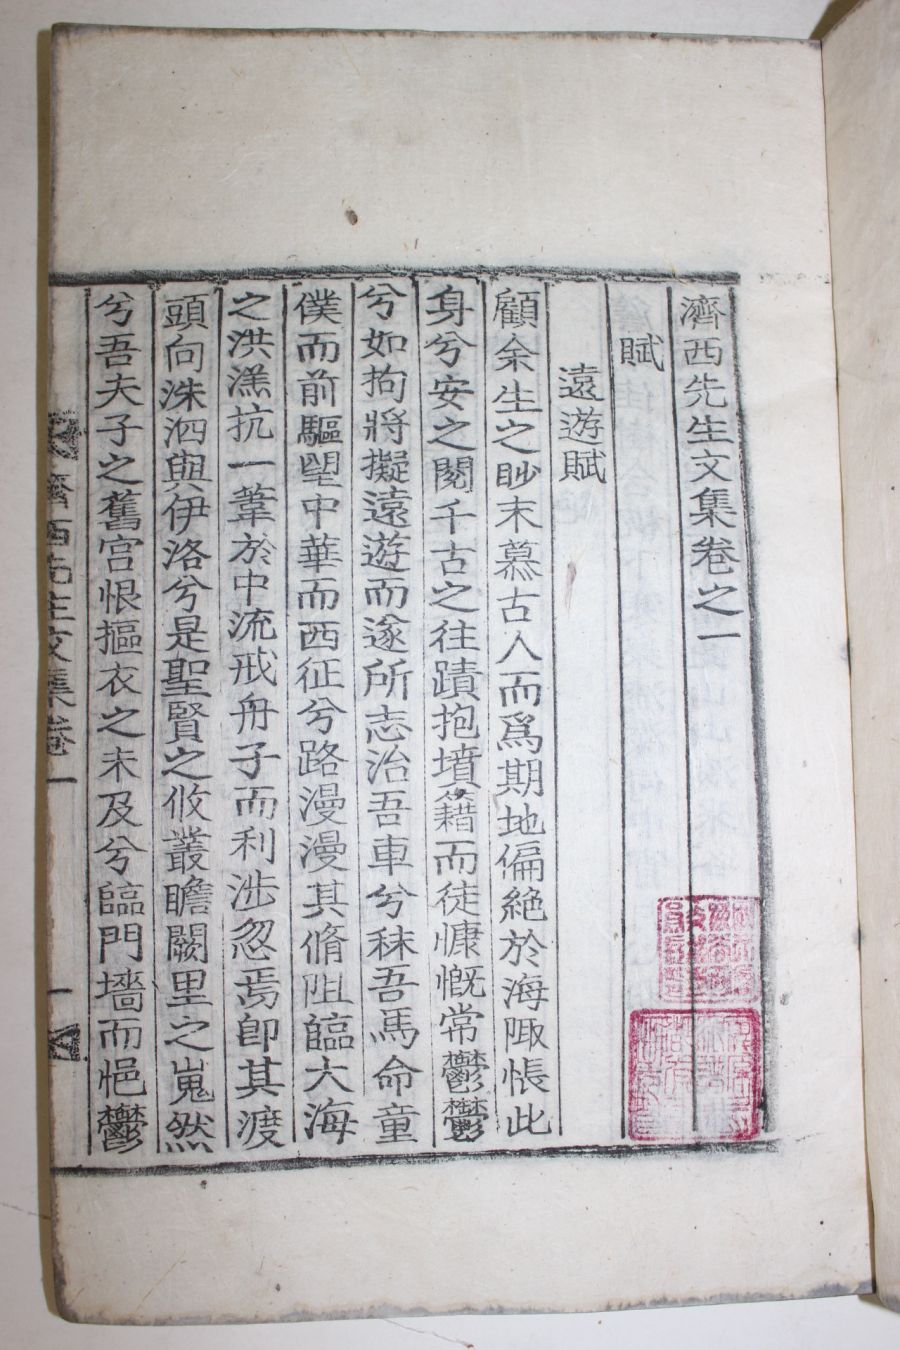 濟西先生文集卷之一
賦
遠遊賦
顧余生之眇末慕古人而爲期地偏絶於海陬悵此
身兮安之閱千古之往蹟抱墳籍而徒慷慨常鬱鬱
兮如拘將擬遠遊而遂所志治吾車兮秣吾馬命童
僕而前驅望中華而西征兮路漫漫其脩阻臨大海
之洪㵝抗一葦於中流戒舟子而利涉忽焉卽其渡
頭向洙泗與伊洛兮是聖賢之攸叢瞻闕里之嵬然
兮吾夫子之舊宮恨摳衣之未及兮臨門墻而悒鬱
濟西先生文集卷一
一